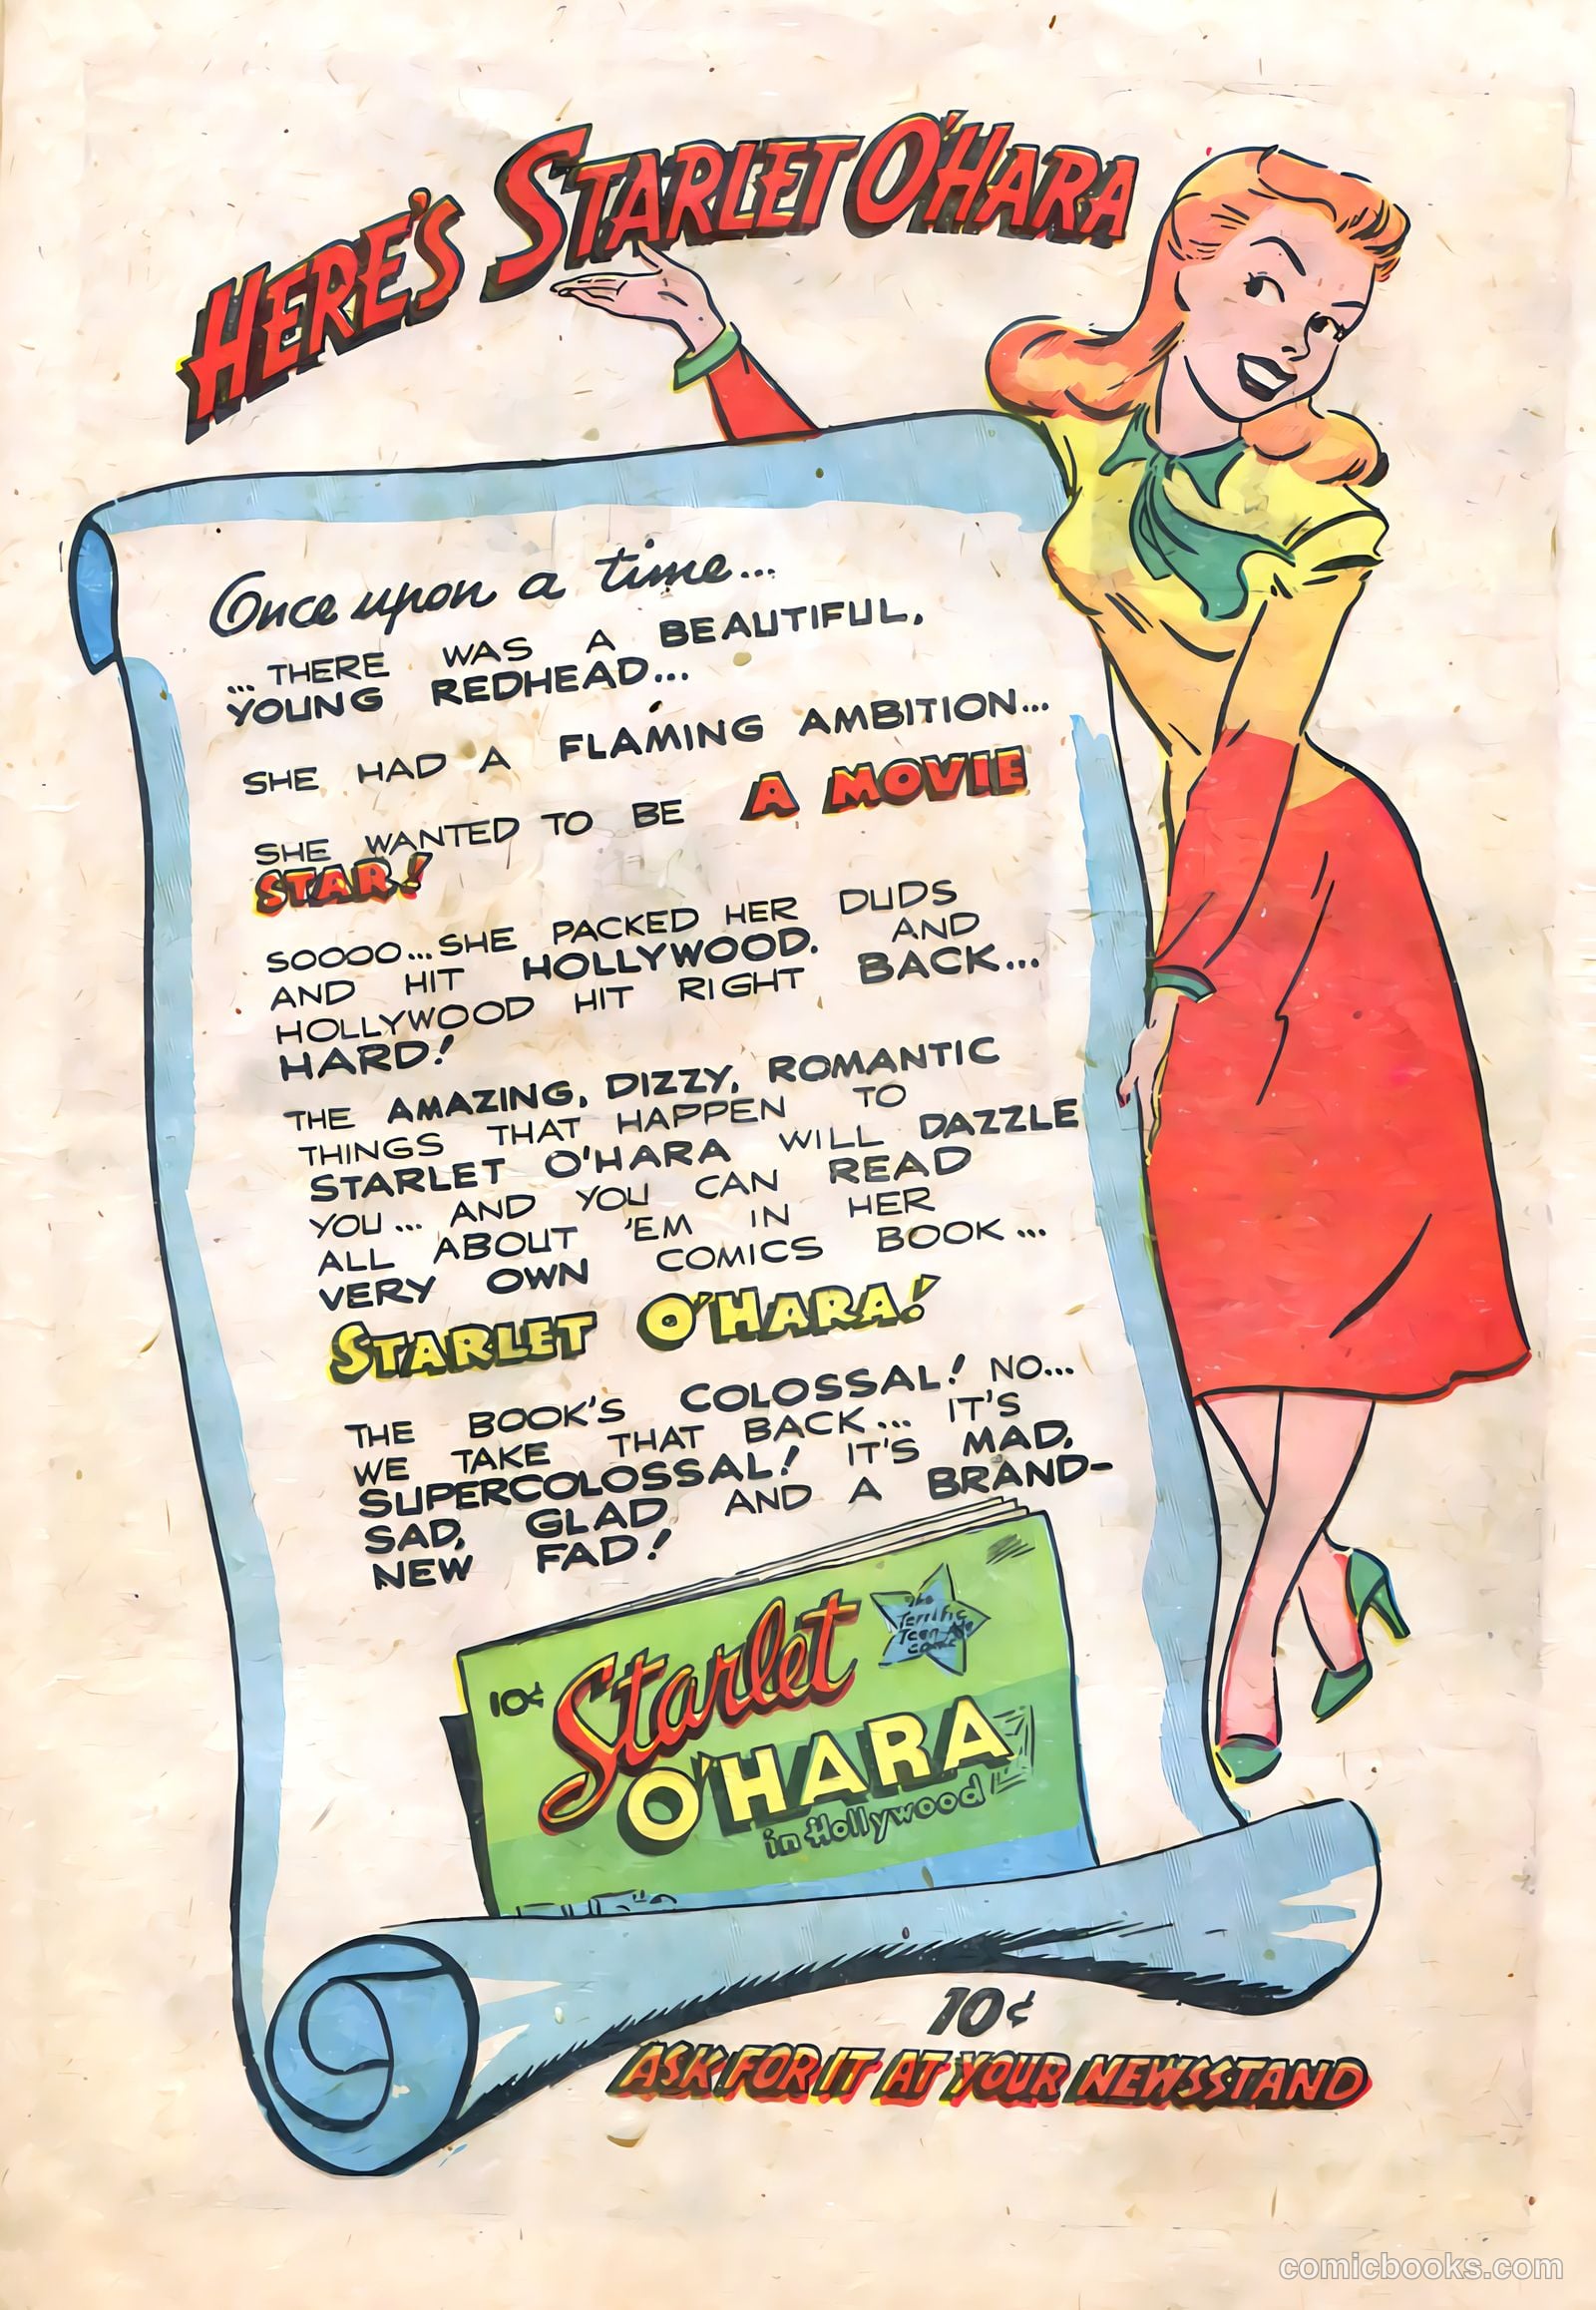 HERE'S STARLET O'HARA
Once upon a time...
...THERE WAS A BEAUTIFUL,
YOUNG REDHEAD...
SHE HAD A FLAMING AMBITION...
SHE WANTED TO BE A MOVIE
STAR!
SOOOO...SHE PACKED HER DUDS
AND HIT HOLLYWOOD. AND
HOLLYWOOD HIT RIGHT BACK...
HARD!
THE AMAZING, DIZZY, ROMANTIC
THINGS THAT HAPPEN TO
STARLET O'HARA WILL DAZZLE
YOU... AND YOU CAN READ
ALL ABOUT 'EM IN HER
VERY OWN COMICS BOOK...
STARLET O'HARA!
THE BOOK'S COLOSSAL! NO...
WE TAKE THAT BACK... IT'S
SUPERCOLOSSAL! IT'S MAD,
SAD, GLAD AND A BRAND-
NEW FAD!
10¢
Starlet
The
Terrific
Teen Age
Comic
O'HARA
in Hollywood
10¢
ASK FOR IT AT YOUR NEWSSTAND
comicbooks.com